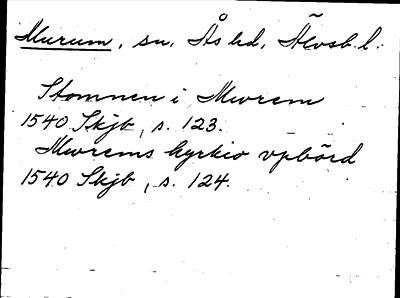 Murum, sn, Ås hd, Älvsb. l.
Stomnen i Mwrem
1540 Skjb, s. 123.
Mwrems kyrkio vpbörd
1540 Skjb, s. 124.